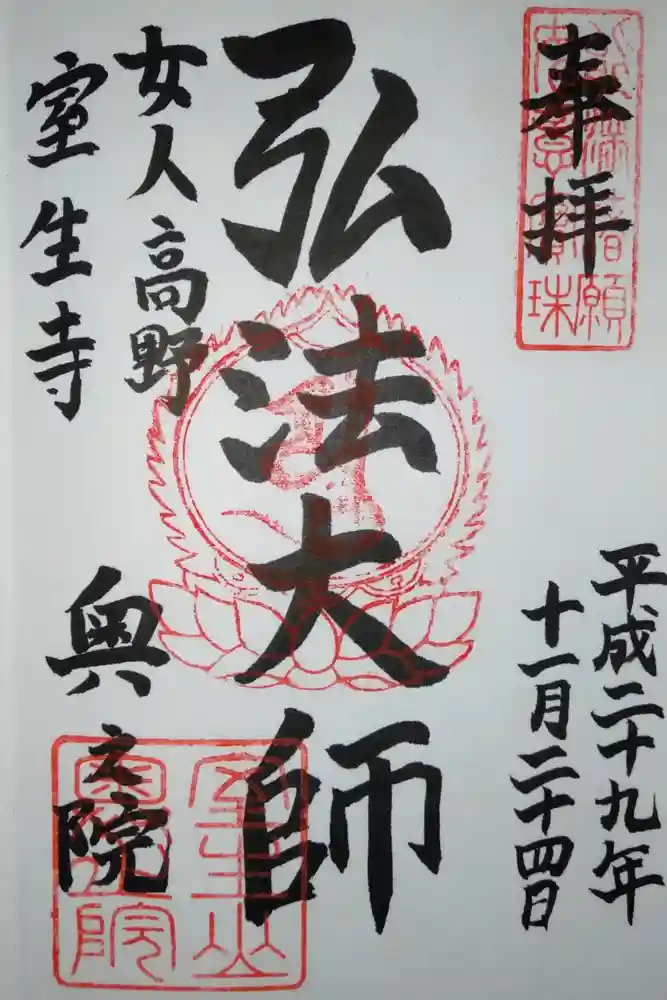 奉拝
平成二十九年
十一月二十四日
弘法大師
女人高野
室生寺
奥之院
室生山
奥之院